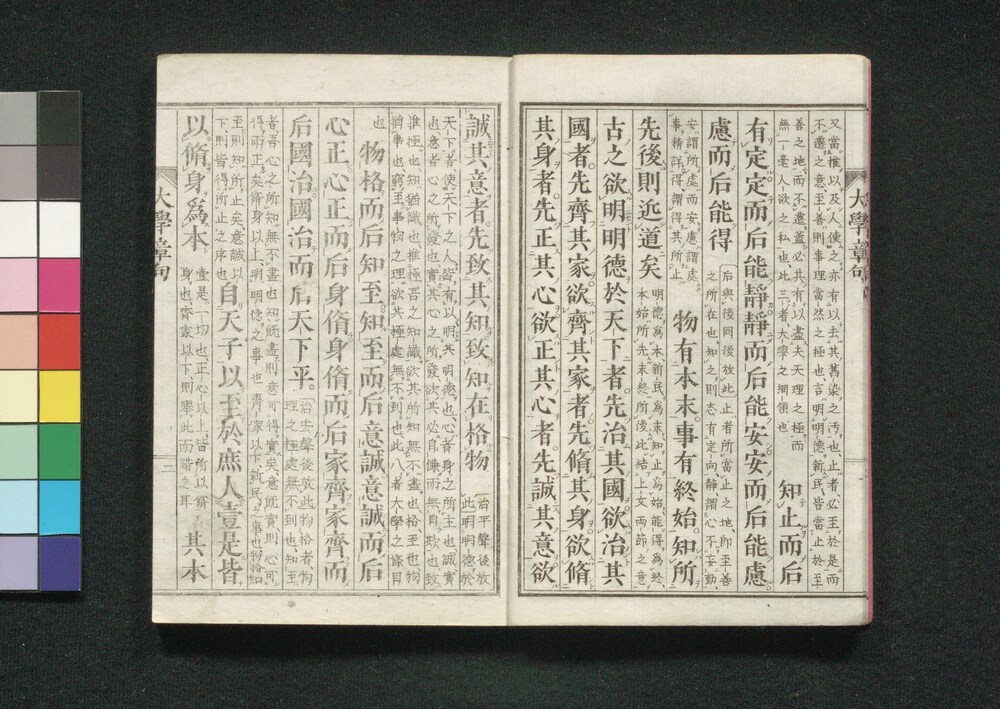 大學章句
又當推以及人使之亦有以去其舊染之汚也止者必至於是而
不遷之意至善則事理當然之極也言明明德新民皆當止於至
善之地而不遷蓋必其有以盡夫天理之極而
無一毫人欲之私也此三者大學之綱領也
知止而后
有定定而后能靜靜而后能安安而后能慮
慮而后能得
后與後同後放此止者所當止之地即至善
之所在也知之則志有定向靜謂心不妄動
安謂所處而安慮謂處
事精詳得謂得其所止
物有本末事有終始知所
先後則近道矣
明德爲本新民爲末知止爲始能得爲終
本始所先末終所後此結上文兩節之意
古之欲明明德於天下者先治其國欲治其
國者先齊其家欲齊其家者先脩其身欲脩
其身者先正其心欲正其心者先誠其意欲
誠其意者先致其知致知在格物
治平聲後放
此明明德於
天下者使天下之人皆有以明其明德也心者身之所主也誠實
也意者心之所發也實其心之所發欲其必自慊而無自欺也致
推極也知猶識也推極吾之知識欲其所知無不盡也格至也物
猶事也窮至事物之理欲其極處無不到也此八者大學之條目
也
物格而后知至知至而后意誠意誠而后
心正心正而后身脩身脩而后家齊家齊而
后國治國治而后天下平
治去聲後放此物格者物
理之極處無不到也知至
者吾心之所知無不盡也知既盡則意可得實矣意既實則心可
得而正矣脩身以上明明德之事也齊家以下新民之事也物格知
至則知所止矣意誠以
下則皆得所止之序也
自天子以至於庶人壹是皆
以脩身爲本
壹是一切也正心以上皆所以脩
身也齊家以下則舉此而措之耳
其本
大學章句
二